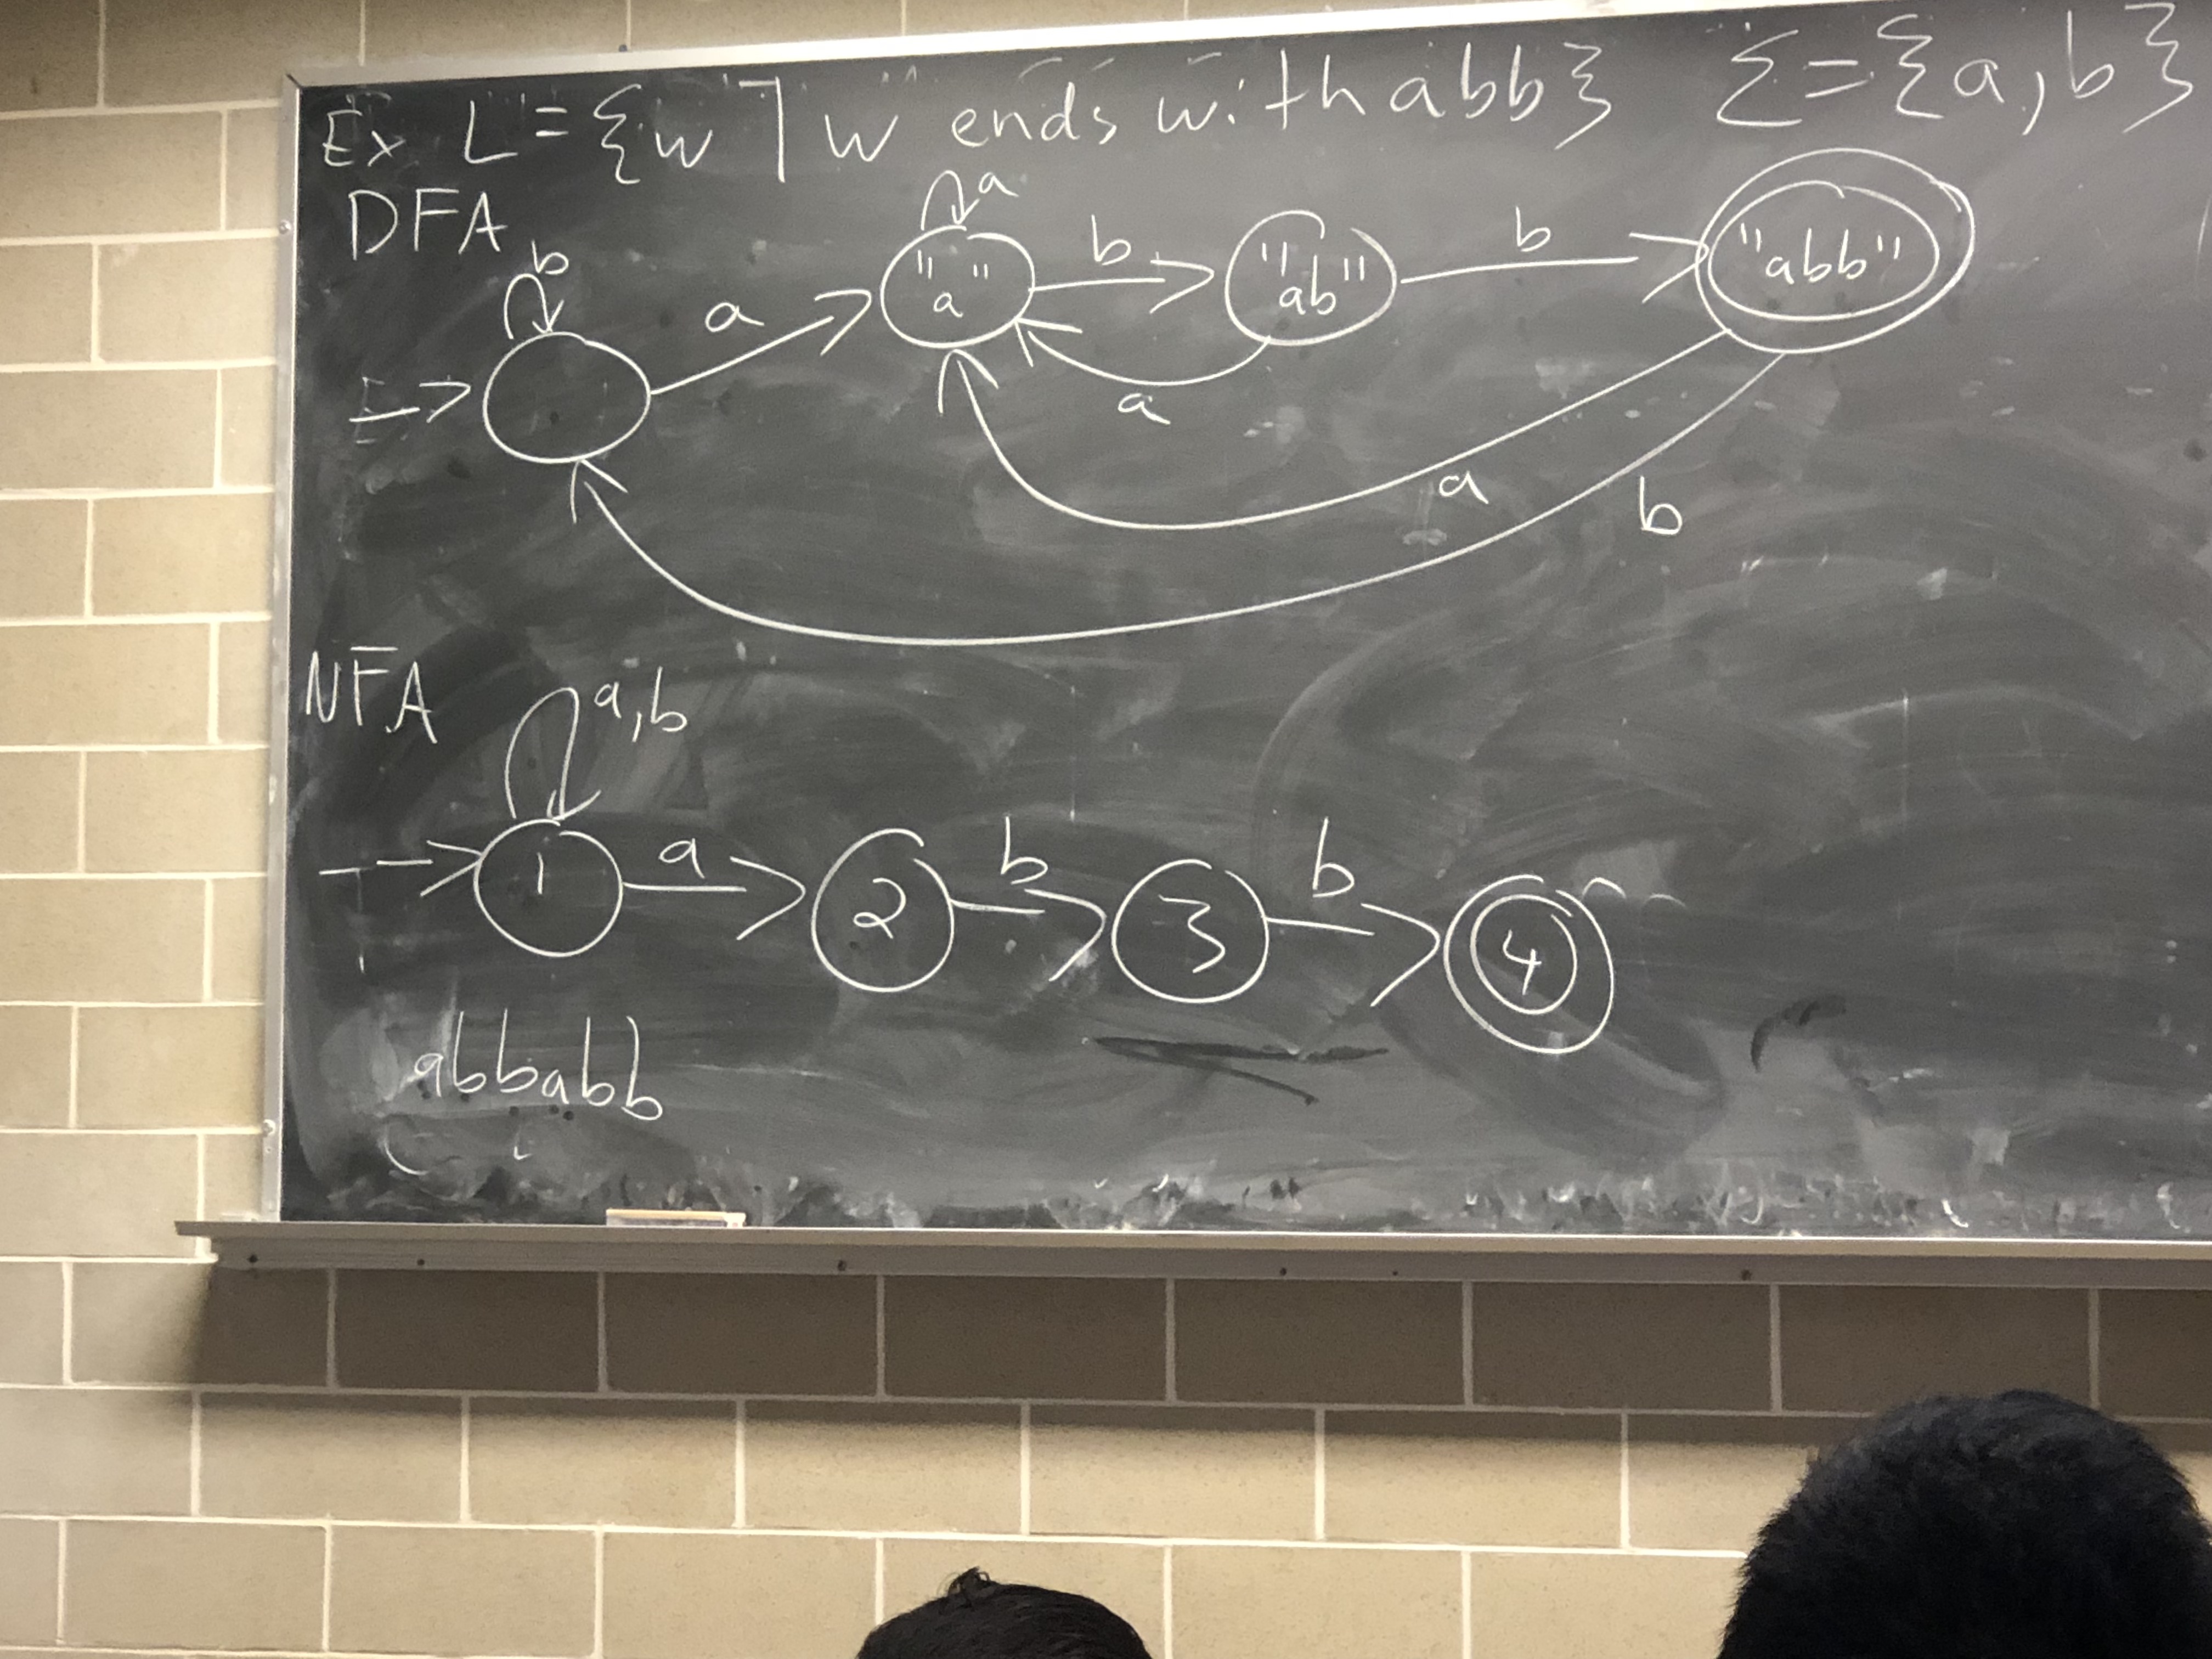 Ex L = {w | w ends with abb} Σ = {a, b}
DFA
b
a
a
"a"
b
"ab"
b
"abb"
a
a
b
NFA
a,b
1
a
2
b
3
b
4
abbabb